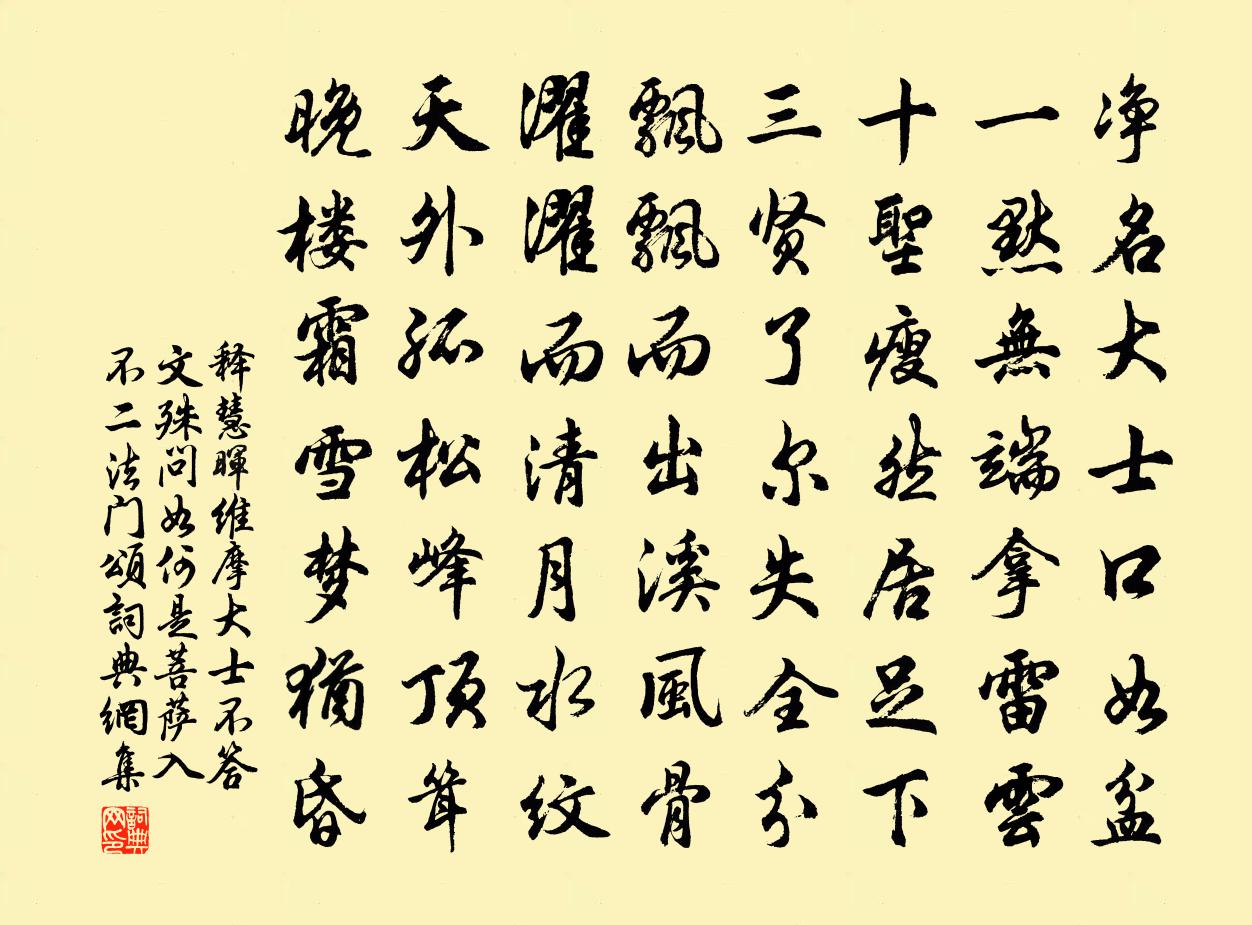 净名大士口如盆
一默無端拿雷雲
十聖瘦然居足下
三贤了尔失全分
飄飄而出溪風骨
濯濯而清月水纹
天外孤松峰顶耸
晚楼霜雪梦犹昏
释慧暉维摩大士不答
文殊问如何是菩萨入
不二法门頌詞典網集
詞典网印